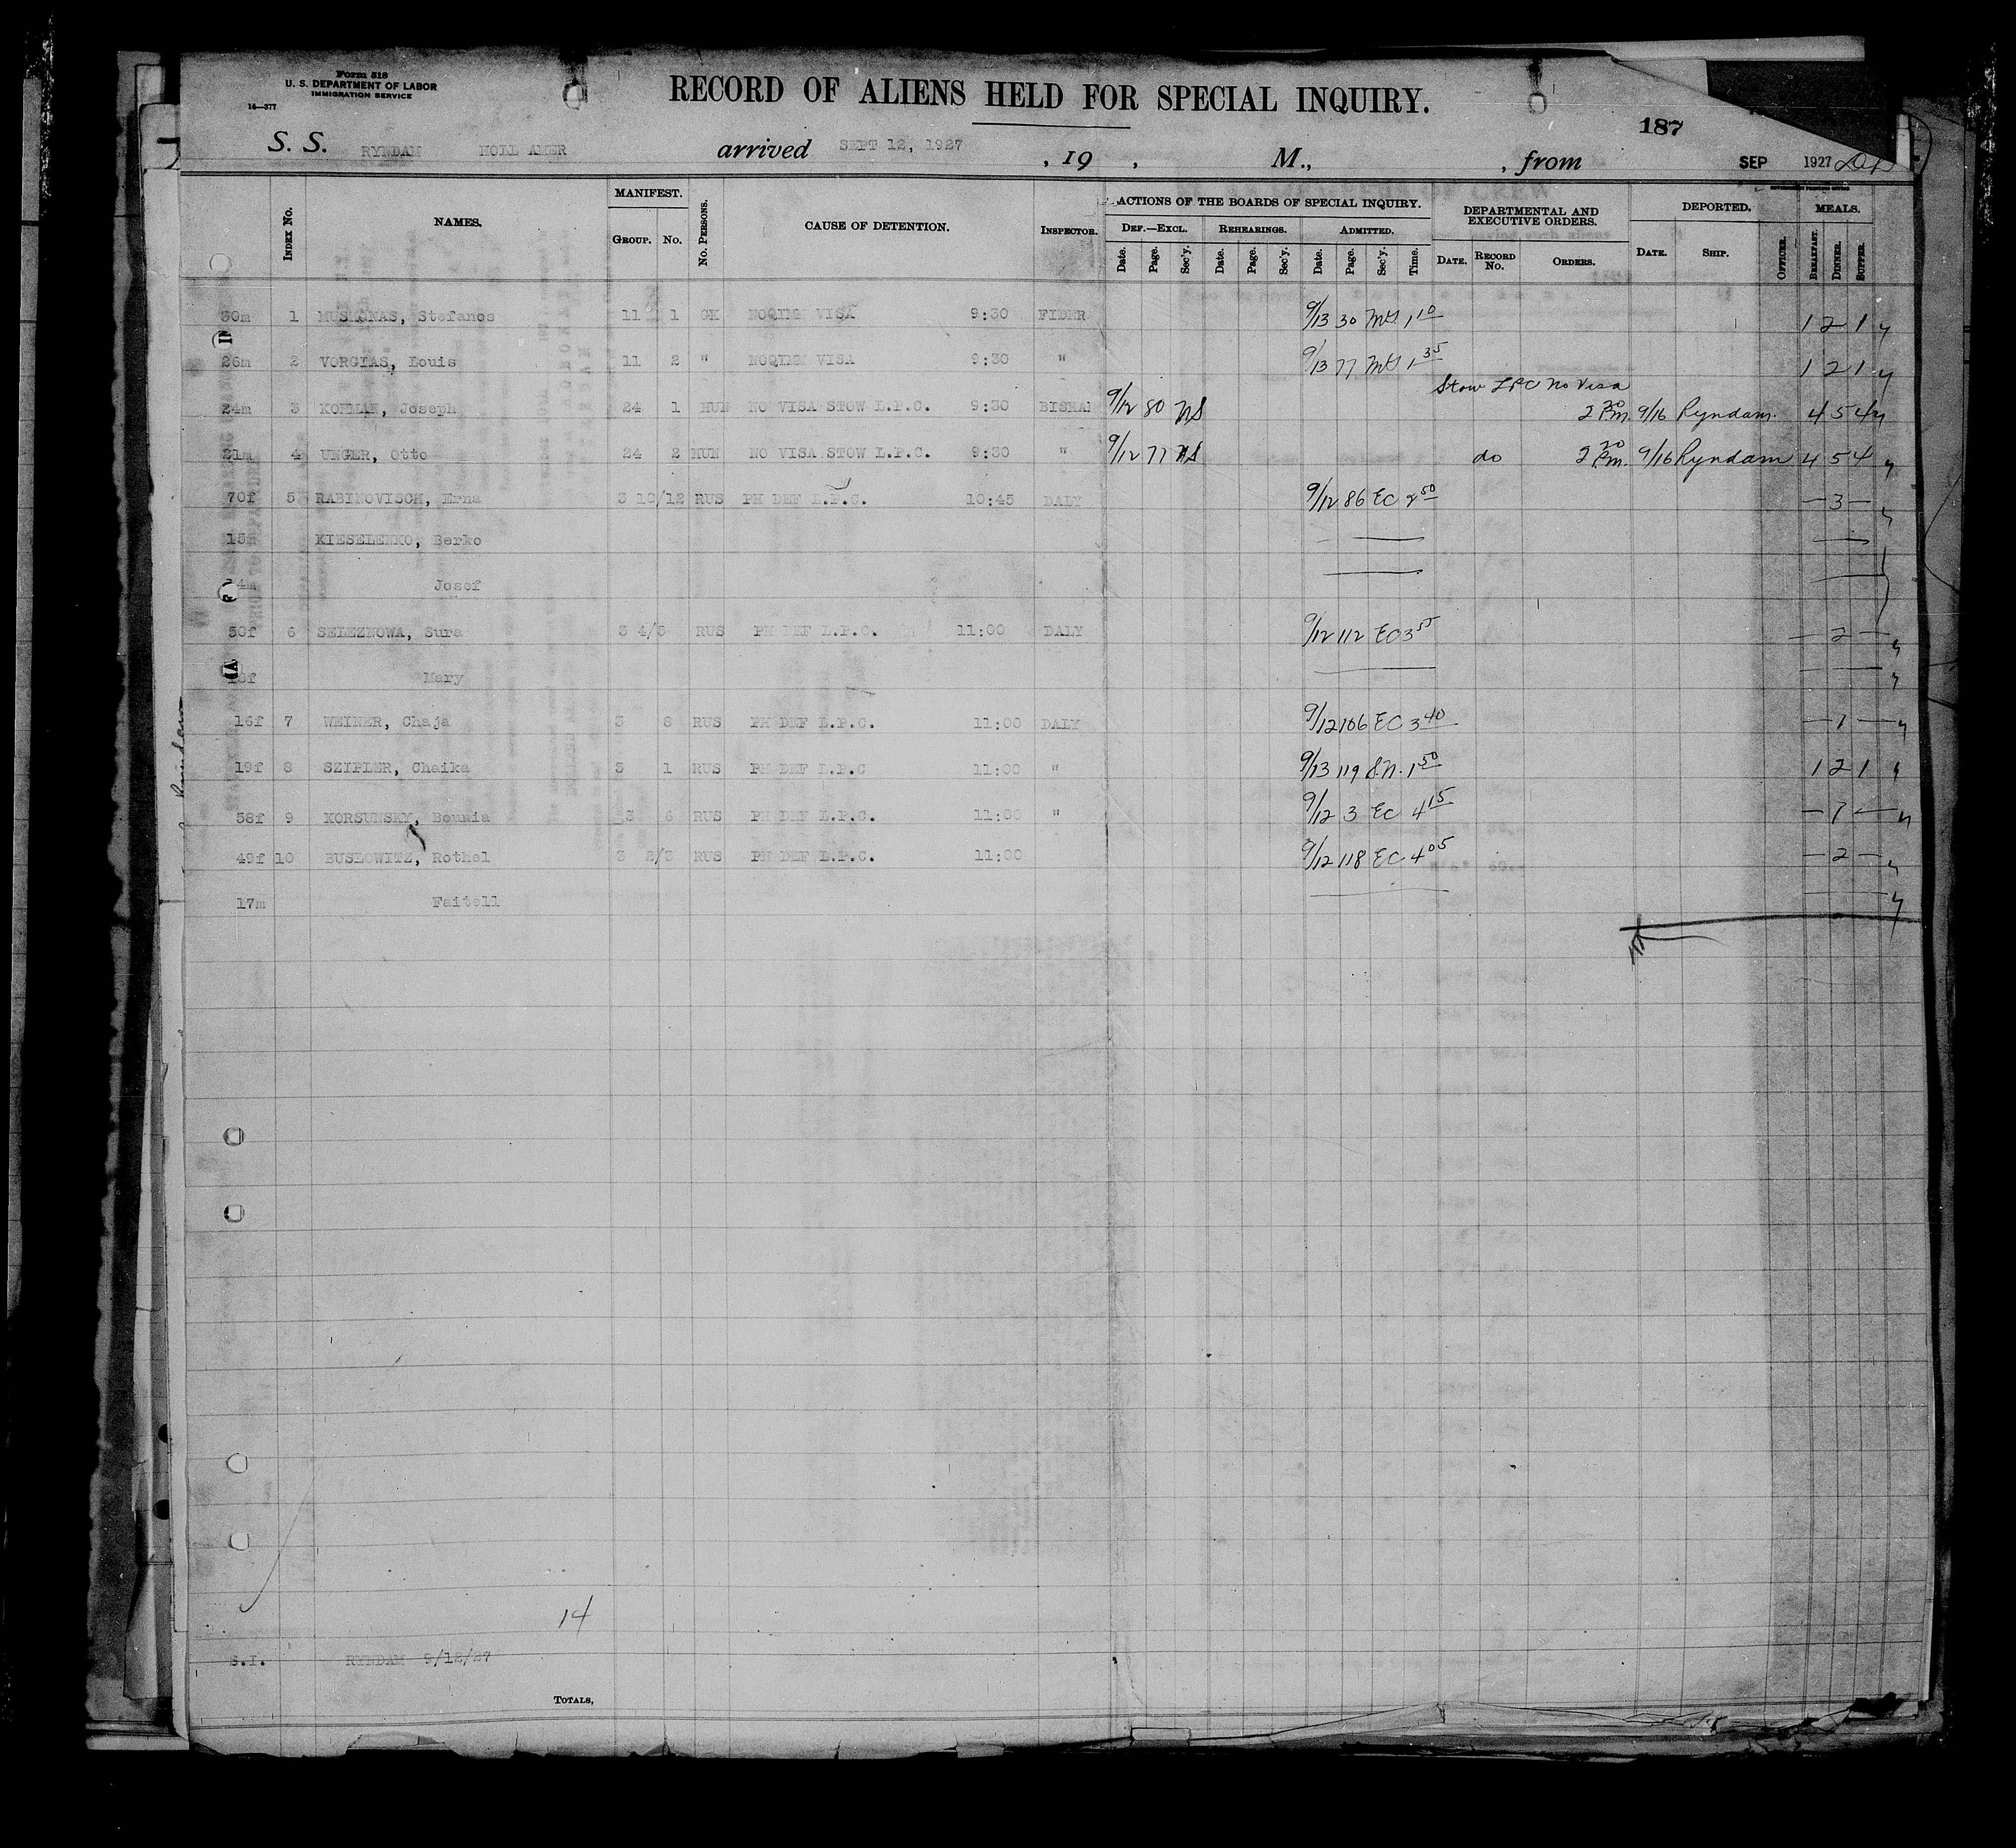 Form 518
U. S. DEPARTMENT OF LABOR
IMMIGRATION SERVICE
14—377
RECORD OF ALIENS HELD FOR SPECIAL INQUIRY.
187
S. S. RYNDAM HOLL AMER arrived SEPT 12, 1927 , 19 , M., , from SEP 1927
INDEX NO. NAMES. MANIFEST. GROUP. NO. NO. PERSONS. CAUSE OF DETENTION. INSPECTOR. ACTIONS OF THE BOARDS OF SPECIAL INQUIRY. DEPARTMENTAL AND EXECUTIVE ORDERS. DEPORTED. MEALS.
DEF.—EXCL. REHEARINGS. ADMITTED.
Date. Page. Sec'y. Date. Page. Sec'y. Date. Page. Sec'y. Time. DATE. RECORD NO. ORDERS. DATE. SHIP. OFFICER. BREAKFAST. DINNER. SUPPER.
30m 1 Stefanos 11 1 GK NOQIMM VISA 9:30 FIDER 9/13 30 1 10 1 2 1
26m 2 VORGIAS, Louis 11 2 " NOQIMM VISA 9:30 " 9/13 77 1 35 1 2 1
Stow LPC No Visa
24m 3 Joseph 24 1 HUN NO VISA STOW L.P.C. 9:30 9/12 80 NS 2 30 Pm. 9/16 Ryndam. 4 5 4
21m 4 UNGER, Otto 24 2 HUN NO VISA STOW L.P.C. 9:30 " 9/12 77 NS do 2 30 Pm. 9/16 Ryndam 4 5 4
70f 5 RABINOVISCH, Erna 3 10/12 RUS PH DEF L.P.C. 10:45 DALY 9/12 86 EC 2 50 — 3 —
15m KIESELENKO, Berko
14m Josef
50f 6 SELEZNOWA, Sura 3 4/5 RUS PH DEF L.P.C. 11:00 DALY 9/12 112 EC 3 55 — 2 —
Mary
16f 7 WEINER, Chaja 3 8 RUS PH DEF L.P.C. 11:00 DALY 9/12 106 EC 3 40 — 1 —
19f 8 SZIPLER, Chaika 3 1 RUS PH DEF L.P.C 11:00 " 9/13 119 S.N. 1 50 1 2 1
58f 9 KORSUNSKY, 3 6 RUS PH DEF L.P.C. 11:00 " 9/12 3 EC 4 15 — 1 —
49f 10 BUSLOWITZ, Rothel 3 2/3 RUS PH DEF L.P.C. 11:00 9/12 118 EC 4 05 — 2 —
17m Faitell
14
S.I. RYNDAM 9/12/27
TOTALS,